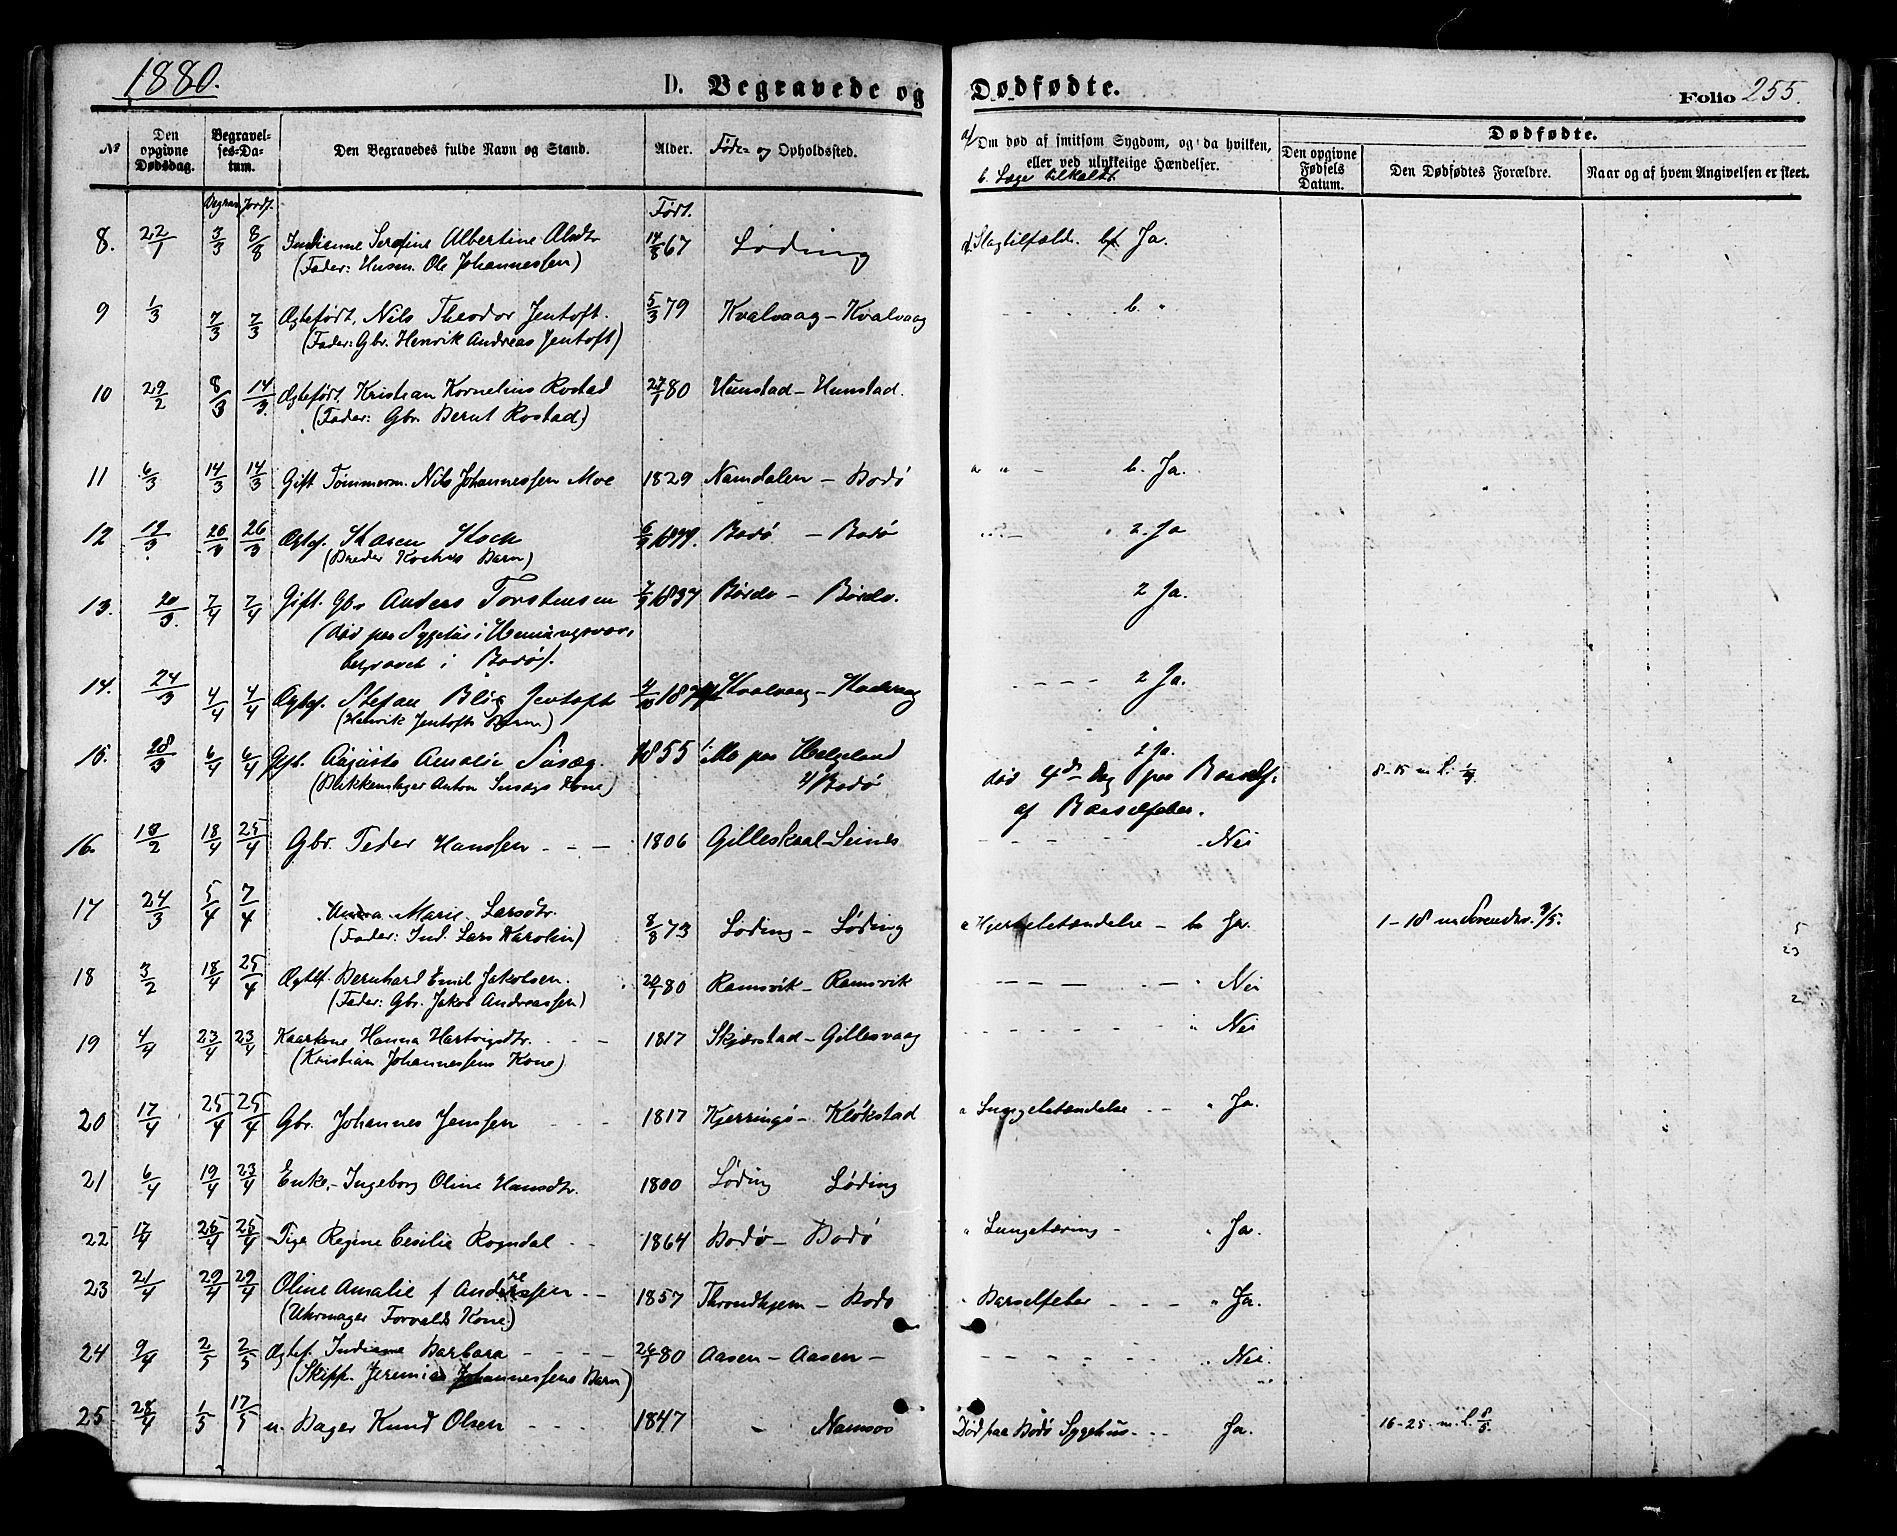 1880.
D. Begravede og Dødfødte.
Folio 255.
No
Den opgivne Dødsdag.
Begravelses-Datum.
Den Begravedes fulde Navn og Stand.
Alder.
Føde- og Opholdssted.
a/ Om død af smitsom Sygdom, og da hvilken, eller ved ulykkelige Hændelser.
b. Læge tilkaldt
Dødfødte.
Den opgivne Fødsels Datum.
Den Dødfødtes Forældre.
Naar og af hvem Angivelsen er skeet.
Begrav. Jordf. Født.
8. 22/1 3/3 8/8 Indianne Serafine Albertine Olsdtr 14/8 67 Løding a/ Slagtilfælde. b/ Ja.
(Fader: Husm. Ole Johannessen)
9 1/3 7/3 7/3 Ægtefødt, Nils Theodor Jentoft. 5/3 79 Kvalvaag – Kvalvaag b. "
(Fader: Gbr. Henrik Andreas Jentoft)
10 29/2 8/3 14/3 Ægtefødt. Kristian Kornelius Rostad 27/1 80 Hunstad – Hunstad.
(Fader: Gbr. Bernt Rostad)
11 6/3 14/3 14/3 Gift Tømmerm. Nils Johannessen Moe 1829 Namdalen – Bodø a " – b. Ja.
12 19/3 26/3 26/3 Ægtef. Koch Bodø – Bodø 2. Ja
(Kochs Barn)
13. 20/3. 7/4 7/4 Gift. Gbr Anders Torstensen 7/9 1837 – 2 Ja.
(død paa Sygehus i Henningsvær,
begravet i Bodø).
14. 24/3 4/4 4/4 Ægtef. Stefan Blix Jentoft Kvalvaag – Kvalvaag 2 Ja.
(Henrik Jentofts Barn)
15. 28/3 6/4 6/4 Gift. Augusta Amalie Susæg 1855 1/ Mo paa Helgeland 2 Ja.
(Blikkenslager Anton Susægs Kone) 2/ Bodø død 4de Dag paa Barselss. 8–15 m l. 1/4
af Barselfeber.
16. 18/2 18/4 25/4 Gbr. Peder Hanssen – – – 1806 Gilleskaal – Seines Nei
17 24/3 5/4 7/4 Anna Marie Larsdtr. 8/8 73 Løding – Løding a Hjernebetændelse – b Ja. 1–18 m
(Fader: Ind. Lars Karolin)
18 3/2 18/4 25/4 Ægtef. Bernhard Emil Jakobsen. 20/1 80 Ramsvik – Ramsvik Nei
(Fader: Gbr. Jakob Andreassen)
19 4/4 23/4 23/4 Kaarkone Hanna Hartvigsdtr. 1817 Skjærstad – Gillesvaag " Nei
(Kristian Johannessens Kone)
20 17/4 25/4 25/4 Gbr. Johannes Jenssen 1817 Kjerringø – Kløkstad a Lungebetændelse – – " Ja.
21 6/4 19/4 23/4 Enke, – Ingeborg Oline Hansdtr. 1800 Løding Løding
22 17/4 25/4 25/4 Pige Regine Cecilie Rogndal 1864 Bodø – Bodø " Lungetæring – " Ja.
23 21/4 29/4 29/4 Oline Amalie f Andreassen – – 1857 Throndhjem – Bodø " Barselfeber – – – " Ja.
(Uhrmager Forvalds Kone)
24 9/4 2/5 2/5 Ægtef. Indianne Barbara – – – 26/1 80 Aasen – Aasen – " Nei.
(Skipp. Jeremias Johannessens Barn)
25 28/4 1/5 17/5 u. Bager Knud Olsen – – 1847 – Namsos Død paa Bodø Sygehus – – – Ja. 16–25. m. l. 8/5.
5
23
2